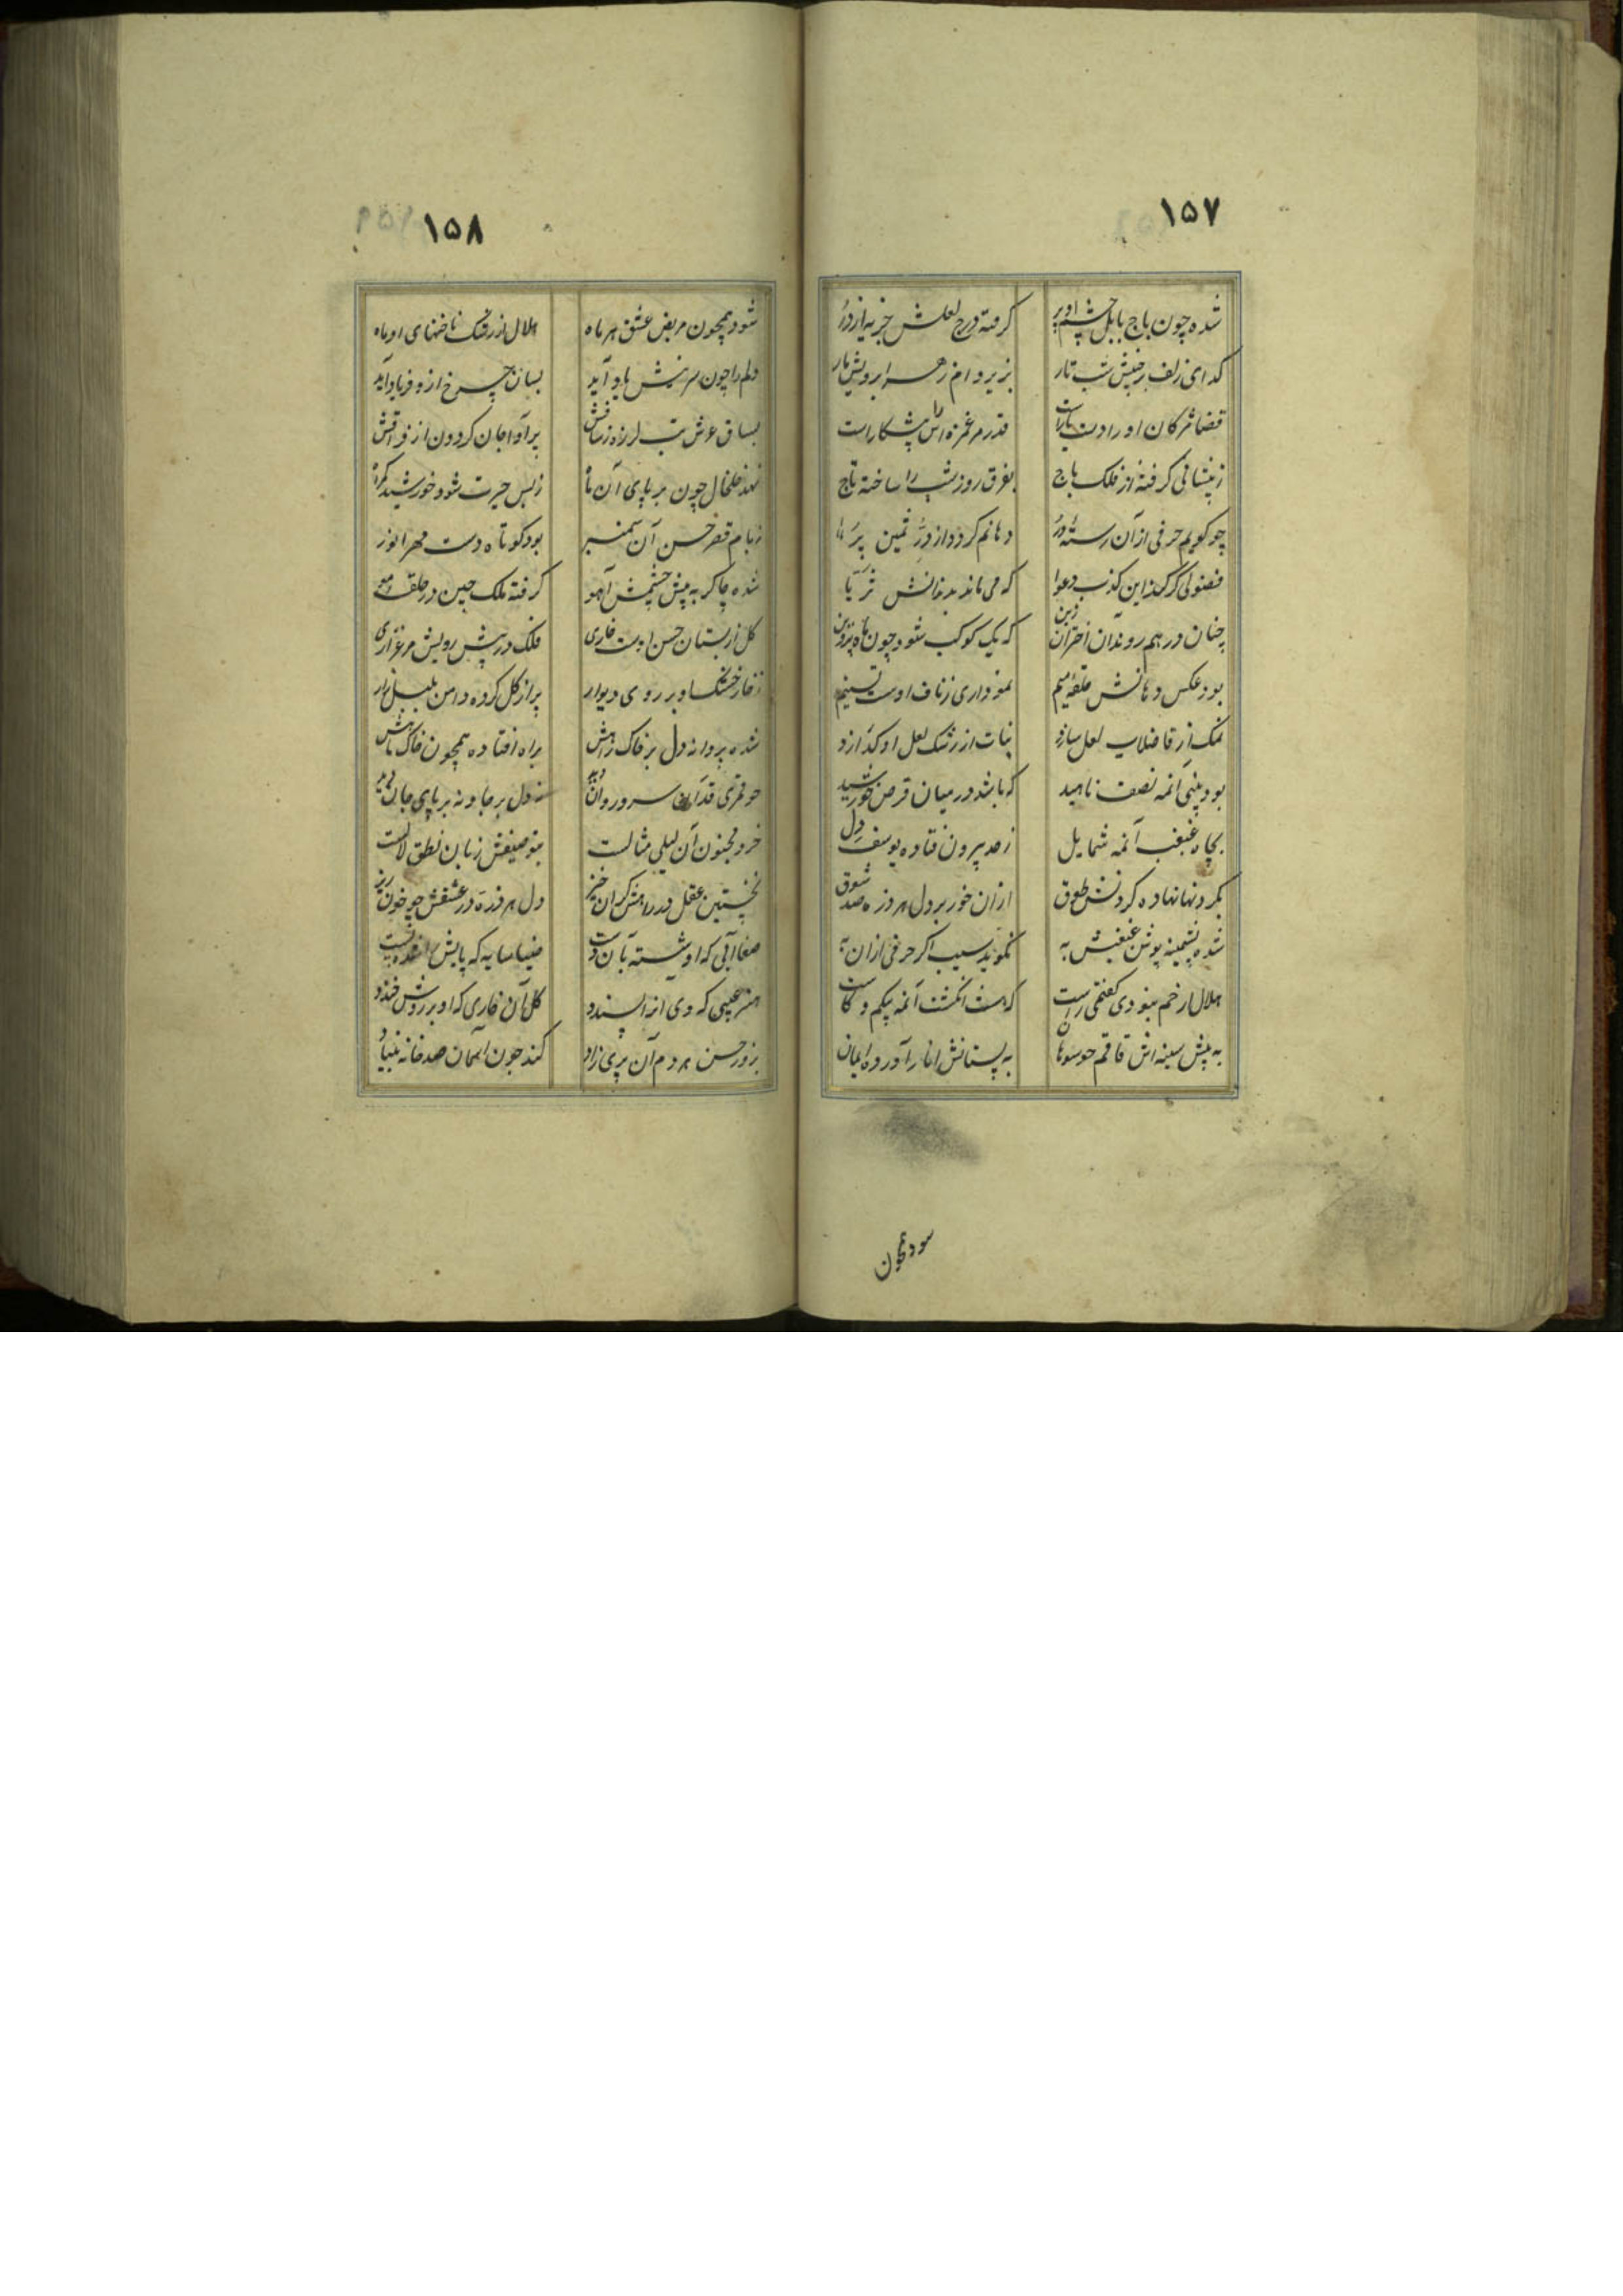 ۱۵۷
شده چون باج بابل چشم او پر گرفته درج لعلش جزیه از در
گدای زلف رخش شب تار بزیر وام زهر ابرویش بار
قضا مژگان او را دست قدر مر غمزه اش را پیشکار است
ز پیشانی گرفته از فلک باج بفرق روز شب را ساخته تاج
چو گویم حرفی از آن رسته در دهانم گردد از در ثمین پر
فضولی گر کند این کذب دعوا که می ماند بدندانش ثریا
چنان در هم روند آن اختران زین که یک کوکب شود چون ماه پروین
بود عکس دهانش حلقه میم نموداری ز ناف اوست تسنیم
نمک از قاضلاب لعل سازد نبات از رشک لعل او گدازد
بود بینی آنمه نصف ناهید که باشد در میان قرص خورشید
بچاه غبغب آنمه شمایل ز صد بیرون فتاده یوسف دل
بگردنها نهاده گردنش طوق از آن خور بر دل هر ذره صد شوق
شده پشمینه پوش غبغبش به نگوید سیب اگر حرفی از آن به
هلال ار خم بنودی گفتمی راست که هست انگشت آنمه بیکم و کاست
به پیش سینه اش قاقم چو سوهان به پستانش انار آورده ایمان
شود همچون
۱۵۸
شود همچون مریض عشق هر ماه هلال از رشک ناخنهای او ماه
دلم را چون سرینش یاد آید بسان چرخ از و فریاد آید
بساق عرش تب لرزه ز ساقش پر آوا جان گردون از فراقش
نهد خلخال چون بر پای آن ماه ز بس حیرت شود خورشید گمراه
ز بام قصر حسن آن سمنبر بود کوتاه دست مهر انور
شده چاکر به پیش چشمش آهو گرفته ملک چین در حلقه مو
گل از بستان حسن اوست خاری فلک در پیش رویش مرغزاری
ز خار خشک او بر روی دیوار پر از گل کرده دامن بلبل زار
شده پروانه دل بر خاک راهش براه افتاده همچون خاک
چو قمری قد آن سرو روان دید نه دل بر جا و نه بر پای جان دید
خرد مجنون آن لیلی مثالست بتوصیفش زبان نطق لالست
نخستین عقل در راهش گران خیز دل هر ذره در عشقش چو خون ریز
صفا آبی که او شسته بآن دست ضیا سایه که پایش
هنر عیبی که وی آنرا پسندد گل آن خاری که او بر روش خندد
بزور حسن هر دم آن پری زاد کند چون آسمان صد خانه بنیاد